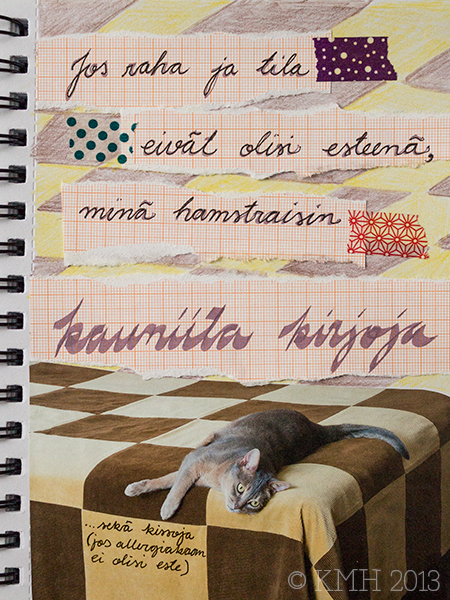 Jos raha ja tila
eivät olisi esteenä,
minä hamstraisin
kauniita kirjoja
...sekä kissoja
(jos allergiakaan
ei olisi este)
© KMH 2013